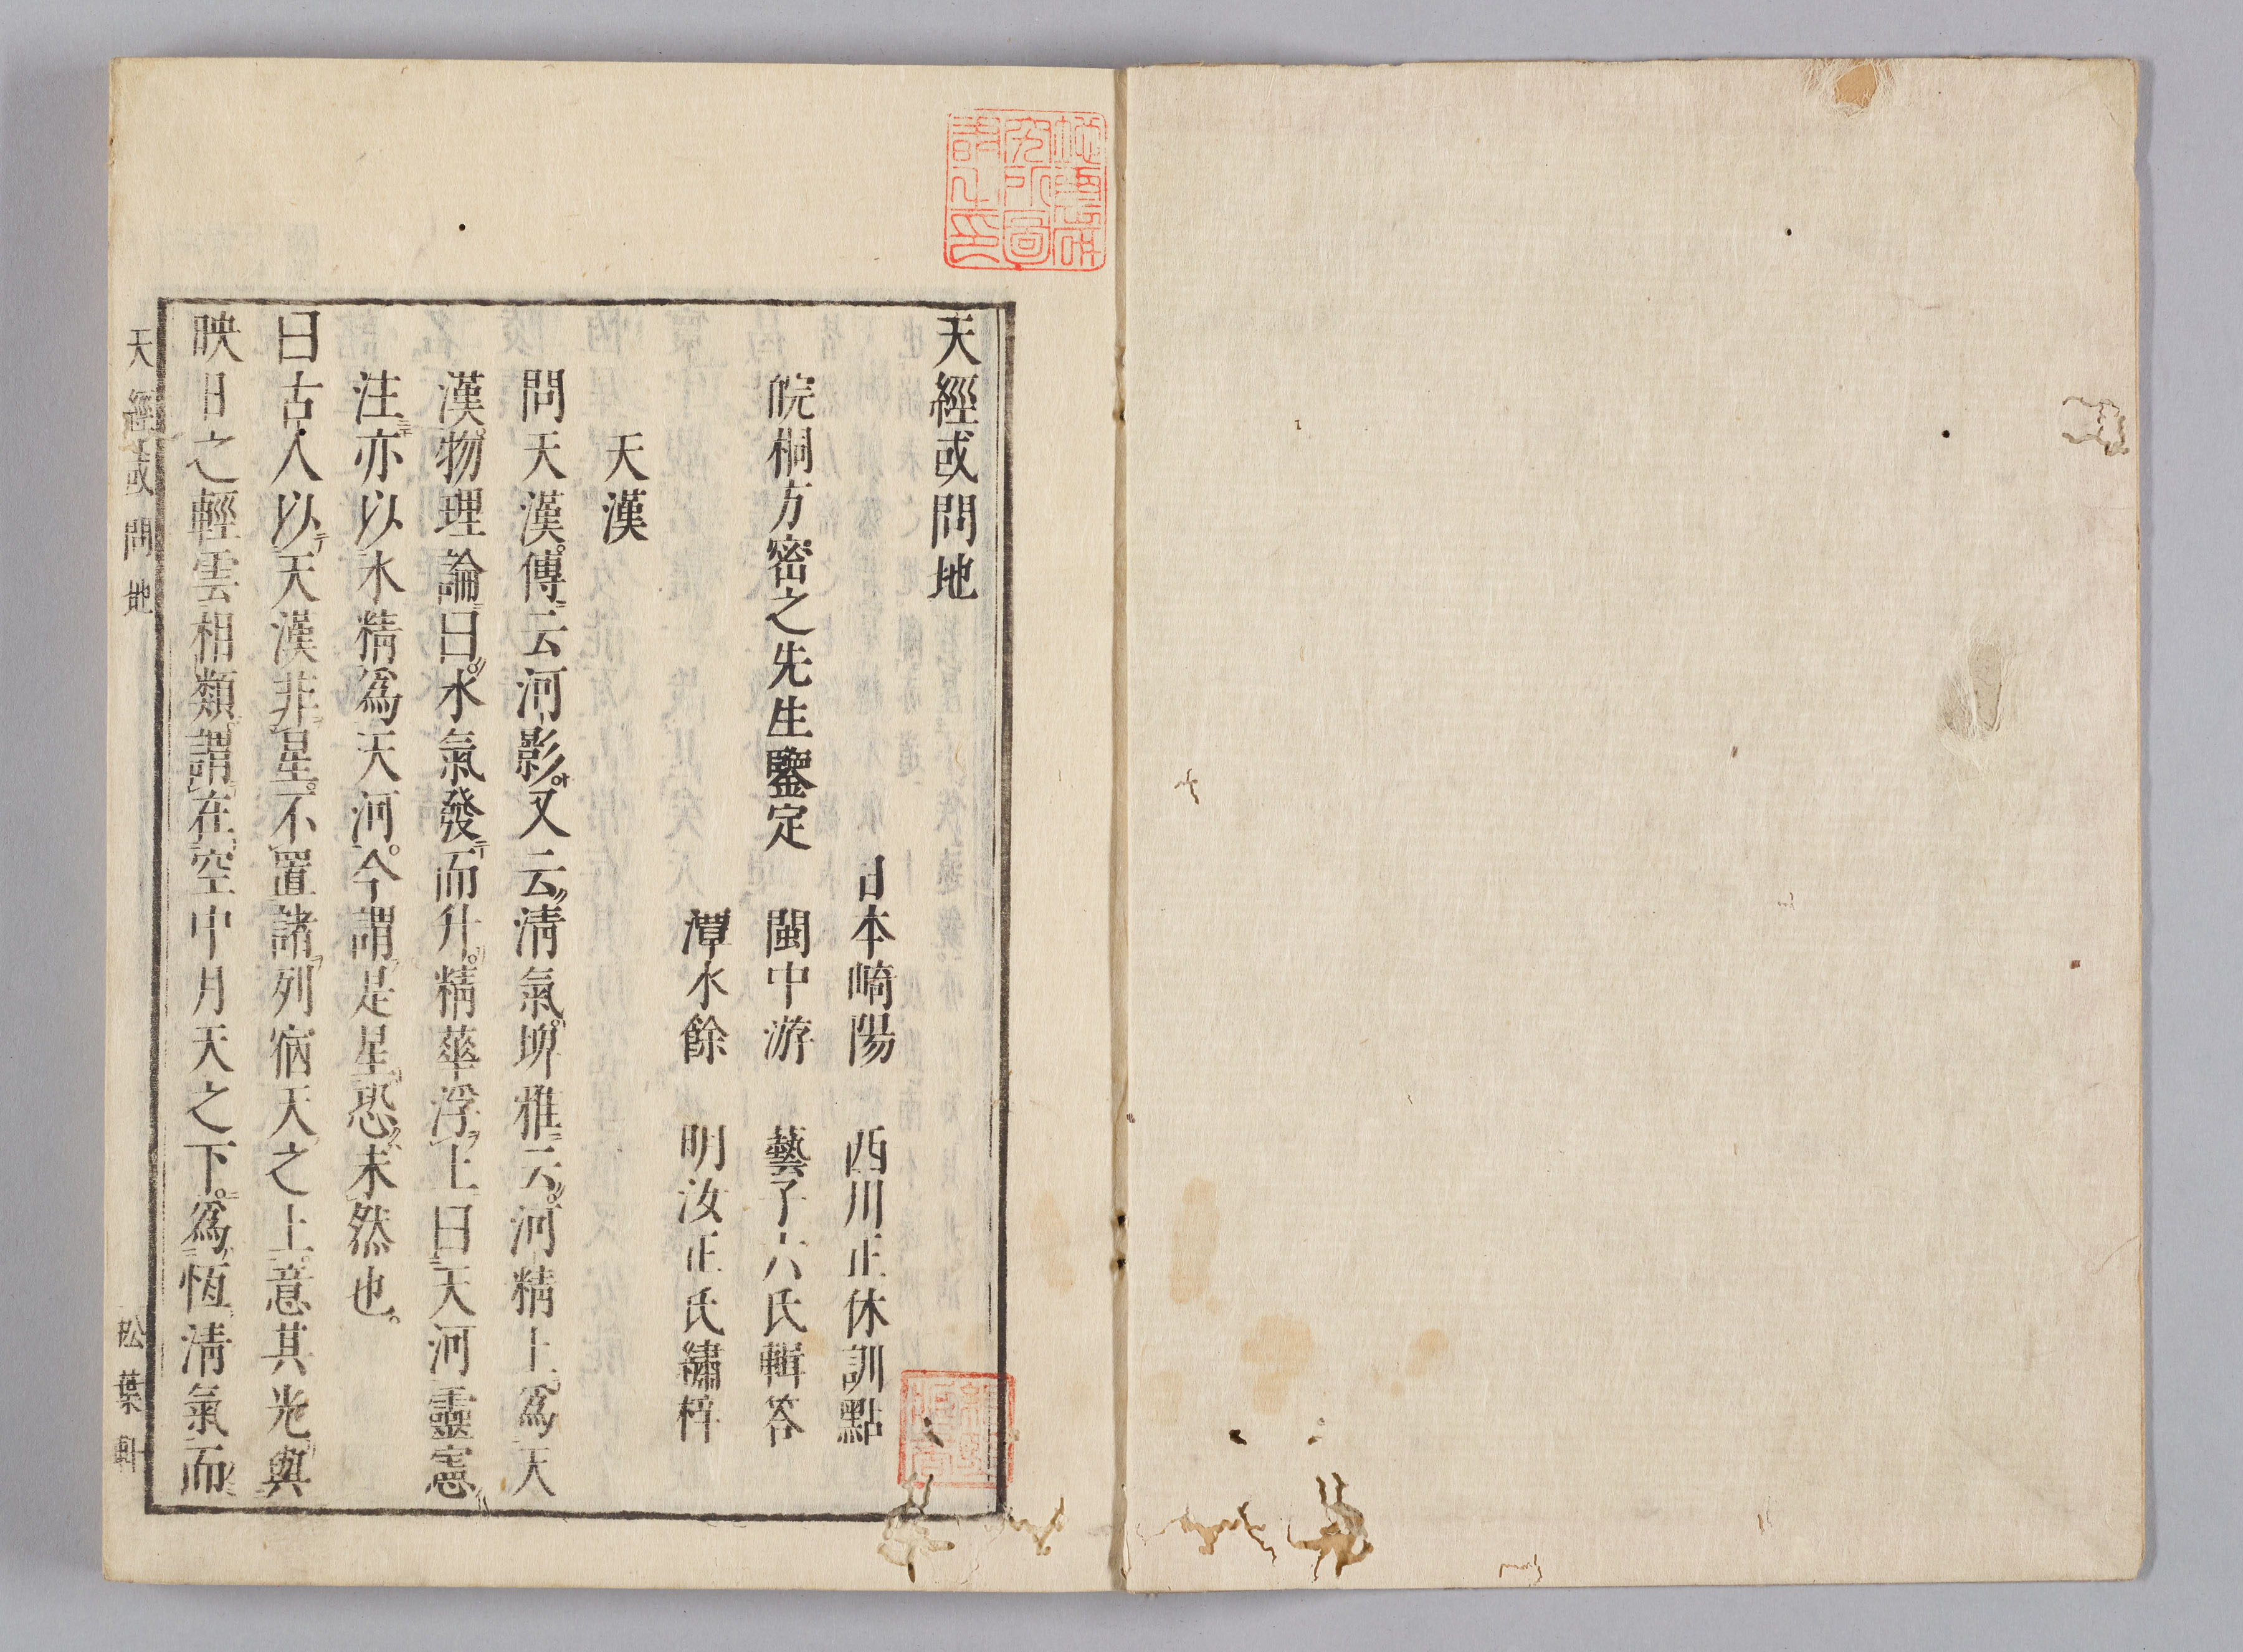 天經或問地
日本崎陽　西川正休訓點
皖桐方密之先生鑒定　閩中游　藝子六氏輯答
潭水餘　明汝正氏繡梓
天漢
問天漢。傳云河影。又云清氣。埤雅云。河精上爲天
漢。物理論曰。水氣發而升。精華浮上曰天河靈憲
注亦以水精爲天河。今謂是星恐未然也。
曰古人以天漢非星。不置諸列宿天之上。意其光與
映日之輕雲相類。謂在空中月天之下。爲恆清氣而
天經或問地
松葉軒